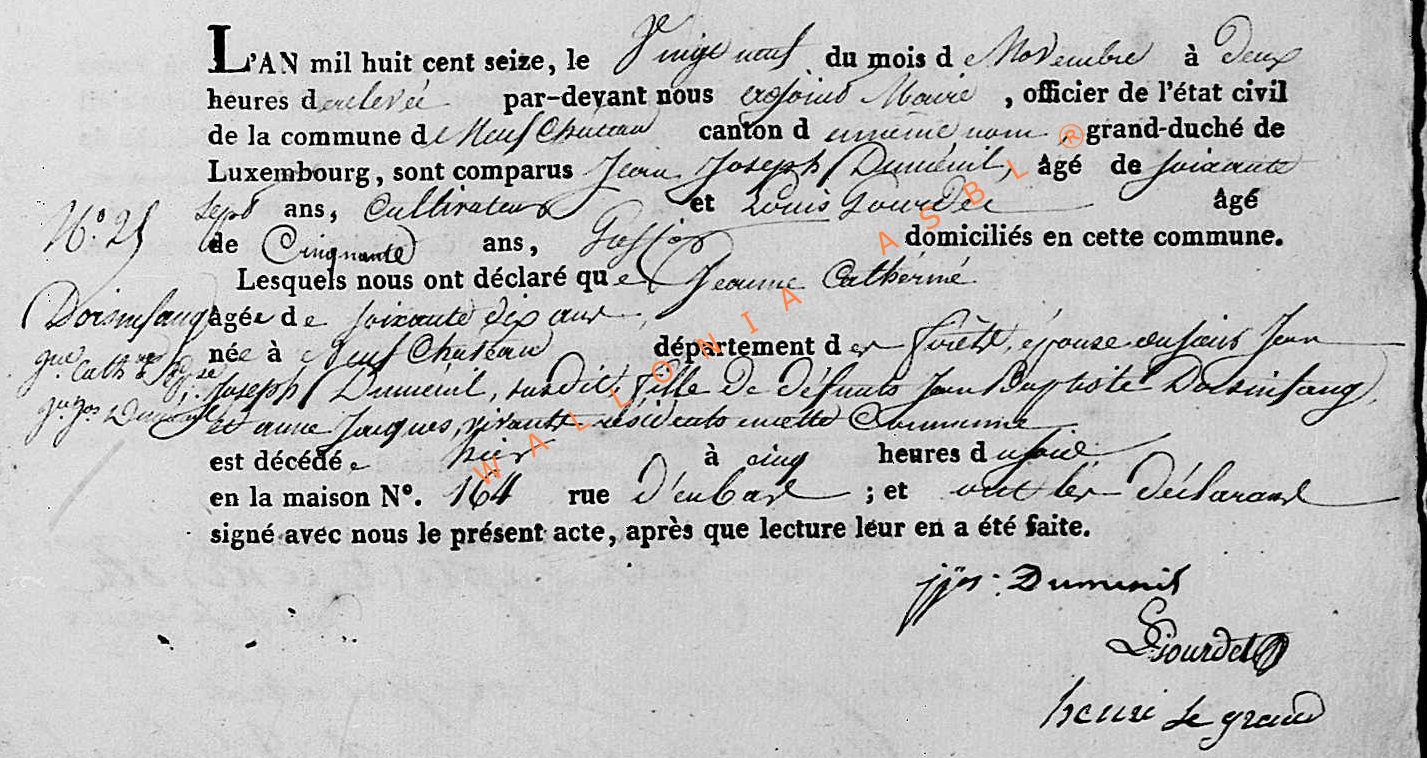 L'AN mil huit cent seize, le Vingt neuf du mois de Novembre à deux
heures de relevée par-devant nous adjoint Maire, officier de l'état civil
de la commune de Neufchateau canton du même nom, grand-duché de
Luxembourg, sont comparus Jean Joseph Duménil, âgé de soixante
sept ans, Cultivateur et Louis Gourdet âgé
de Cinquante ans, domiciliés en cette commune.
N.° 25
Lesquels nous ont déclaré que Jeanne Catherine
Dorsinfang âgée de soixante dix ans,
née à Neufchateau département des forêts, épouse au sieur Jean
Joseph Duménil, susdit, fille de défunts Jean Baptiste Dorsinfang,
et anne Jacques, vivants résidents en cette Commune
est décédée hier à cinq heures du soir
en la maison N°. 164 rue d'enbas ; et ont les déclarans
signé avec nous le présent acte, après que lecture leur en a été faite.
jjos. Dumenil
L Gourdet
henri le grand
WALLONIA ASBL ®